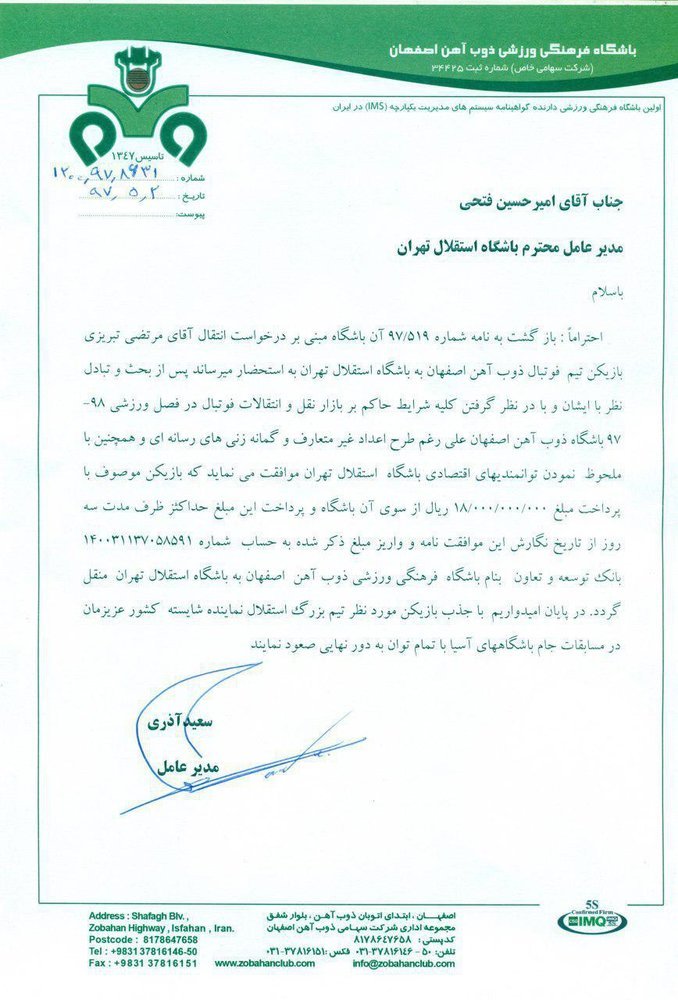 باشگاه فرهنگی ورزشی ذوب آهن اصفهان
(شرکت سهامی خاص) شماره ثبت ۳۴۴۲۵
اولین باشگاه فرهنگی ورزشی دارنده گواهینامه سیستم های مدیریت یکپارچه (IMS) در ایران
تاسیس ۱۳۴۷
شماره :
تاریخ : ۹۷٫۵٫۲
پیوست:
جناب آقای امیرحسین فتحی
مدیر عامل محترم باشگاه استقلال تهران
باسلام
احتراماً : باز گشت به نامه شماره ۹۷/۵۱۹ آن باشگاه مبنی بر درخواست انتقال آقای مرتضی تبریزی
بازیکن تیم فوتبال ذوب آهن اصفهان به باشگاه استقلال تهران به استحضار میرساند پس از بحث و تبادل
نظر با ایشان و با در نظر گرفتن کلیه شرایط حاکم بر بازار نقل و انتقالات فوتبال در فصل ورزشی ۹۸-
۹۷ باشگاه ذوب آهن اصفهان علی رغم طرح اعداد غیر متعارف و گمانه زنی های رسانه ای و همچنین با
ملحوظ نمودن توانمندیهای اقتصادی باشگاه استقلال تهران موافقت می نماید که بازیکن موصوف با
پرداخت مبلغ ۱۸/۰۰۰/۰۰۰/۰۰۰ ریال از سوی آن باشگاه و پرداخت این مبلغ حداکثز ظرف مدت سه
روز از تاریخ نگارش این موافقت نامه و واریز مبلغ ذکر شده به حساب شماره ۱۴۰۰۳۱۱۳۷۰۵۸۵۹۱
بانک توسعه و تعاون بنام باشگاه فرهنگی ورزشی ذوب آهن اصفهان به باشگاه استقلال تهران منقل
گردد. در پایان امیدواریم با جذب بازیکن مورد نظر تیم بزرگ استقلال نماینده شایسته کشور عزیزمان
در مسابقات جام باشگاههای آسیا با تمام توان به دور نهایی صعود نمایند
سعید آذری
مدیر عامل
اصفهـــان ، ابتدای اتوبان ذوب آهـن ، بلوار شفق
مجموعه اداری شرکت سهـامی ذوب آهن اصفهان
کدپستی : ۸۱۷۸۶۴۷۶۵۸
تلفن: ۵۰ - ۳۷۸۱۶۱۴۶-۰۳۱ فکس :۳۷۸۱۶۱۵۱-۰۳۱
www.zobahanclub.com info@zobahanclub.com
Address : Shafagh Blv. ,
Zobahan Highway , Isfahan , Iran.
Postcode : 8178647658
Tel : +9831 37816146-50
Fax : +9831 37816151
5S
Confirmed Firm
IMQ